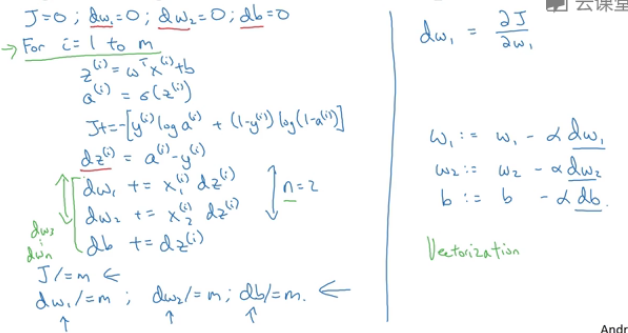 J=0 ; dw₁=0 ; dw₂=0 ; db=0
→ For i=1 to m
z⁽ⁱ⁾ = wᵀx⁽ⁱ⁾+b
a⁽ⁱ⁾ = σ(z⁽ⁱ⁾)
J+= -[y⁽ⁱ⁾ log a⁽ⁱ⁾ + (1-y⁽ⁱ⁾) log(1-a⁽ⁱ⁾)]
dz⁽ⁱ⁾ = a⁽ⁱ⁾-y⁽ⁱ⁾
dw₁ += x₁⁽ⁱ⁾ dz⁽ⁱ⁾
dw₂ += x₂⁽ⁱ⁾ dz⁽ⁱ⁾
n=2
db += dz⁽ⁱ⁾
dw₃
⋮
dwₙ
J/=m ←
dw₁/=m ; dw₂/=m ; db/=m. ←
↑ ↑ ↑
dw₁ = ∂J/∂w₁
w₁ := w₁ - α dw₁
w₂ := w₂ - α dw₂
b := b - α db.
Vectorization
云课堂
Andr